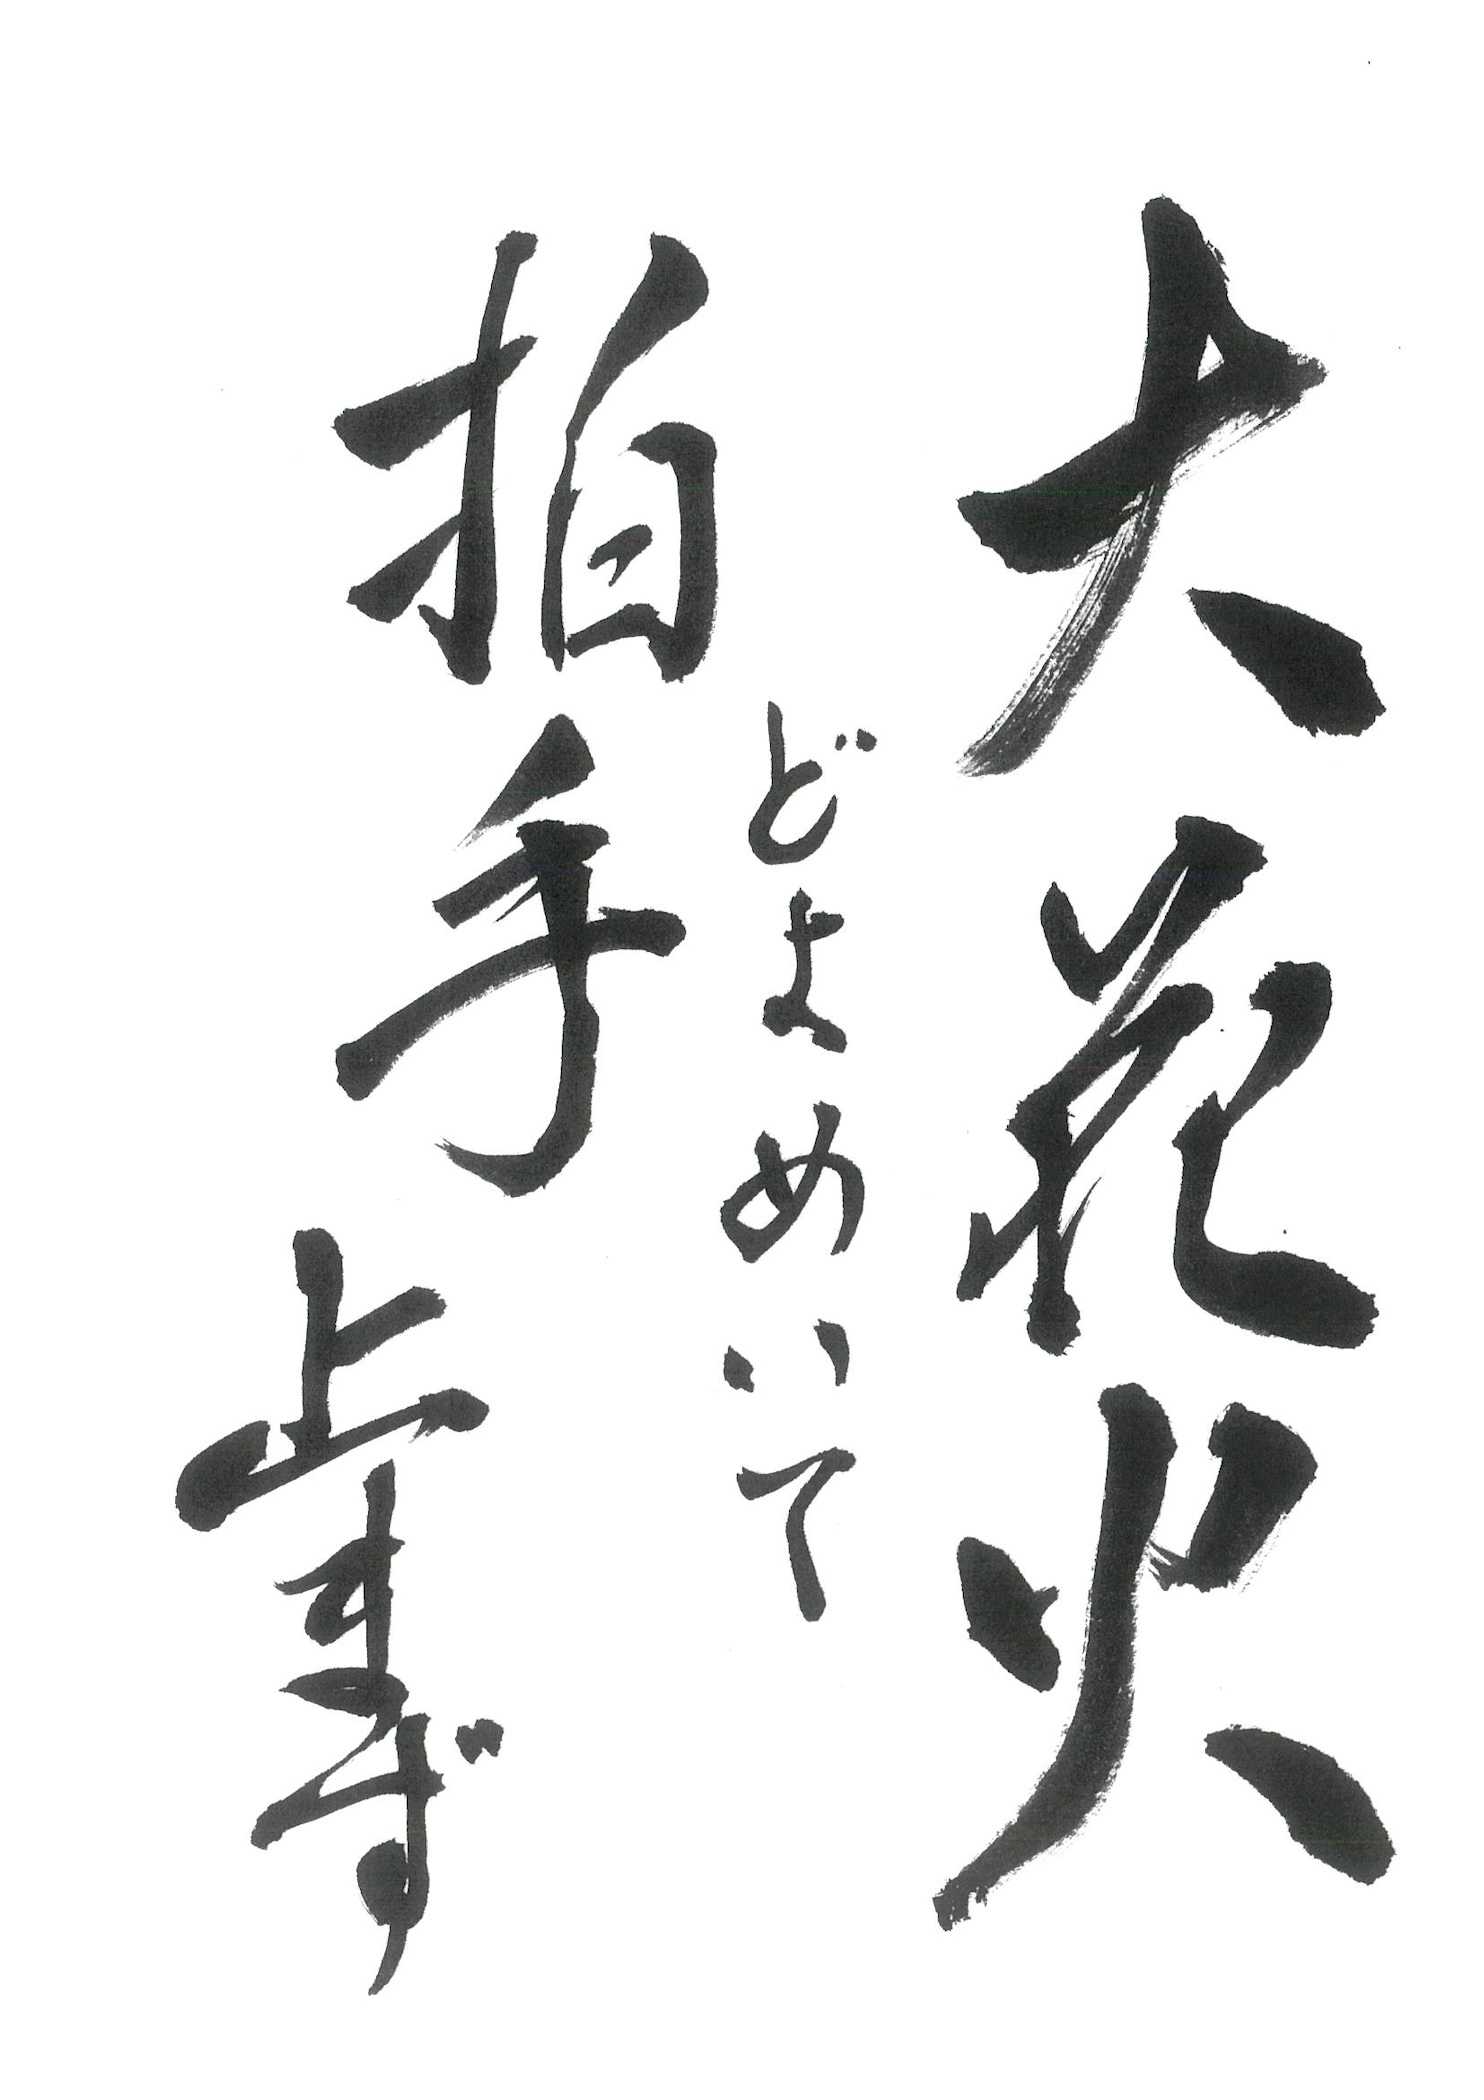 大花火
どよめいて
拍手止まず